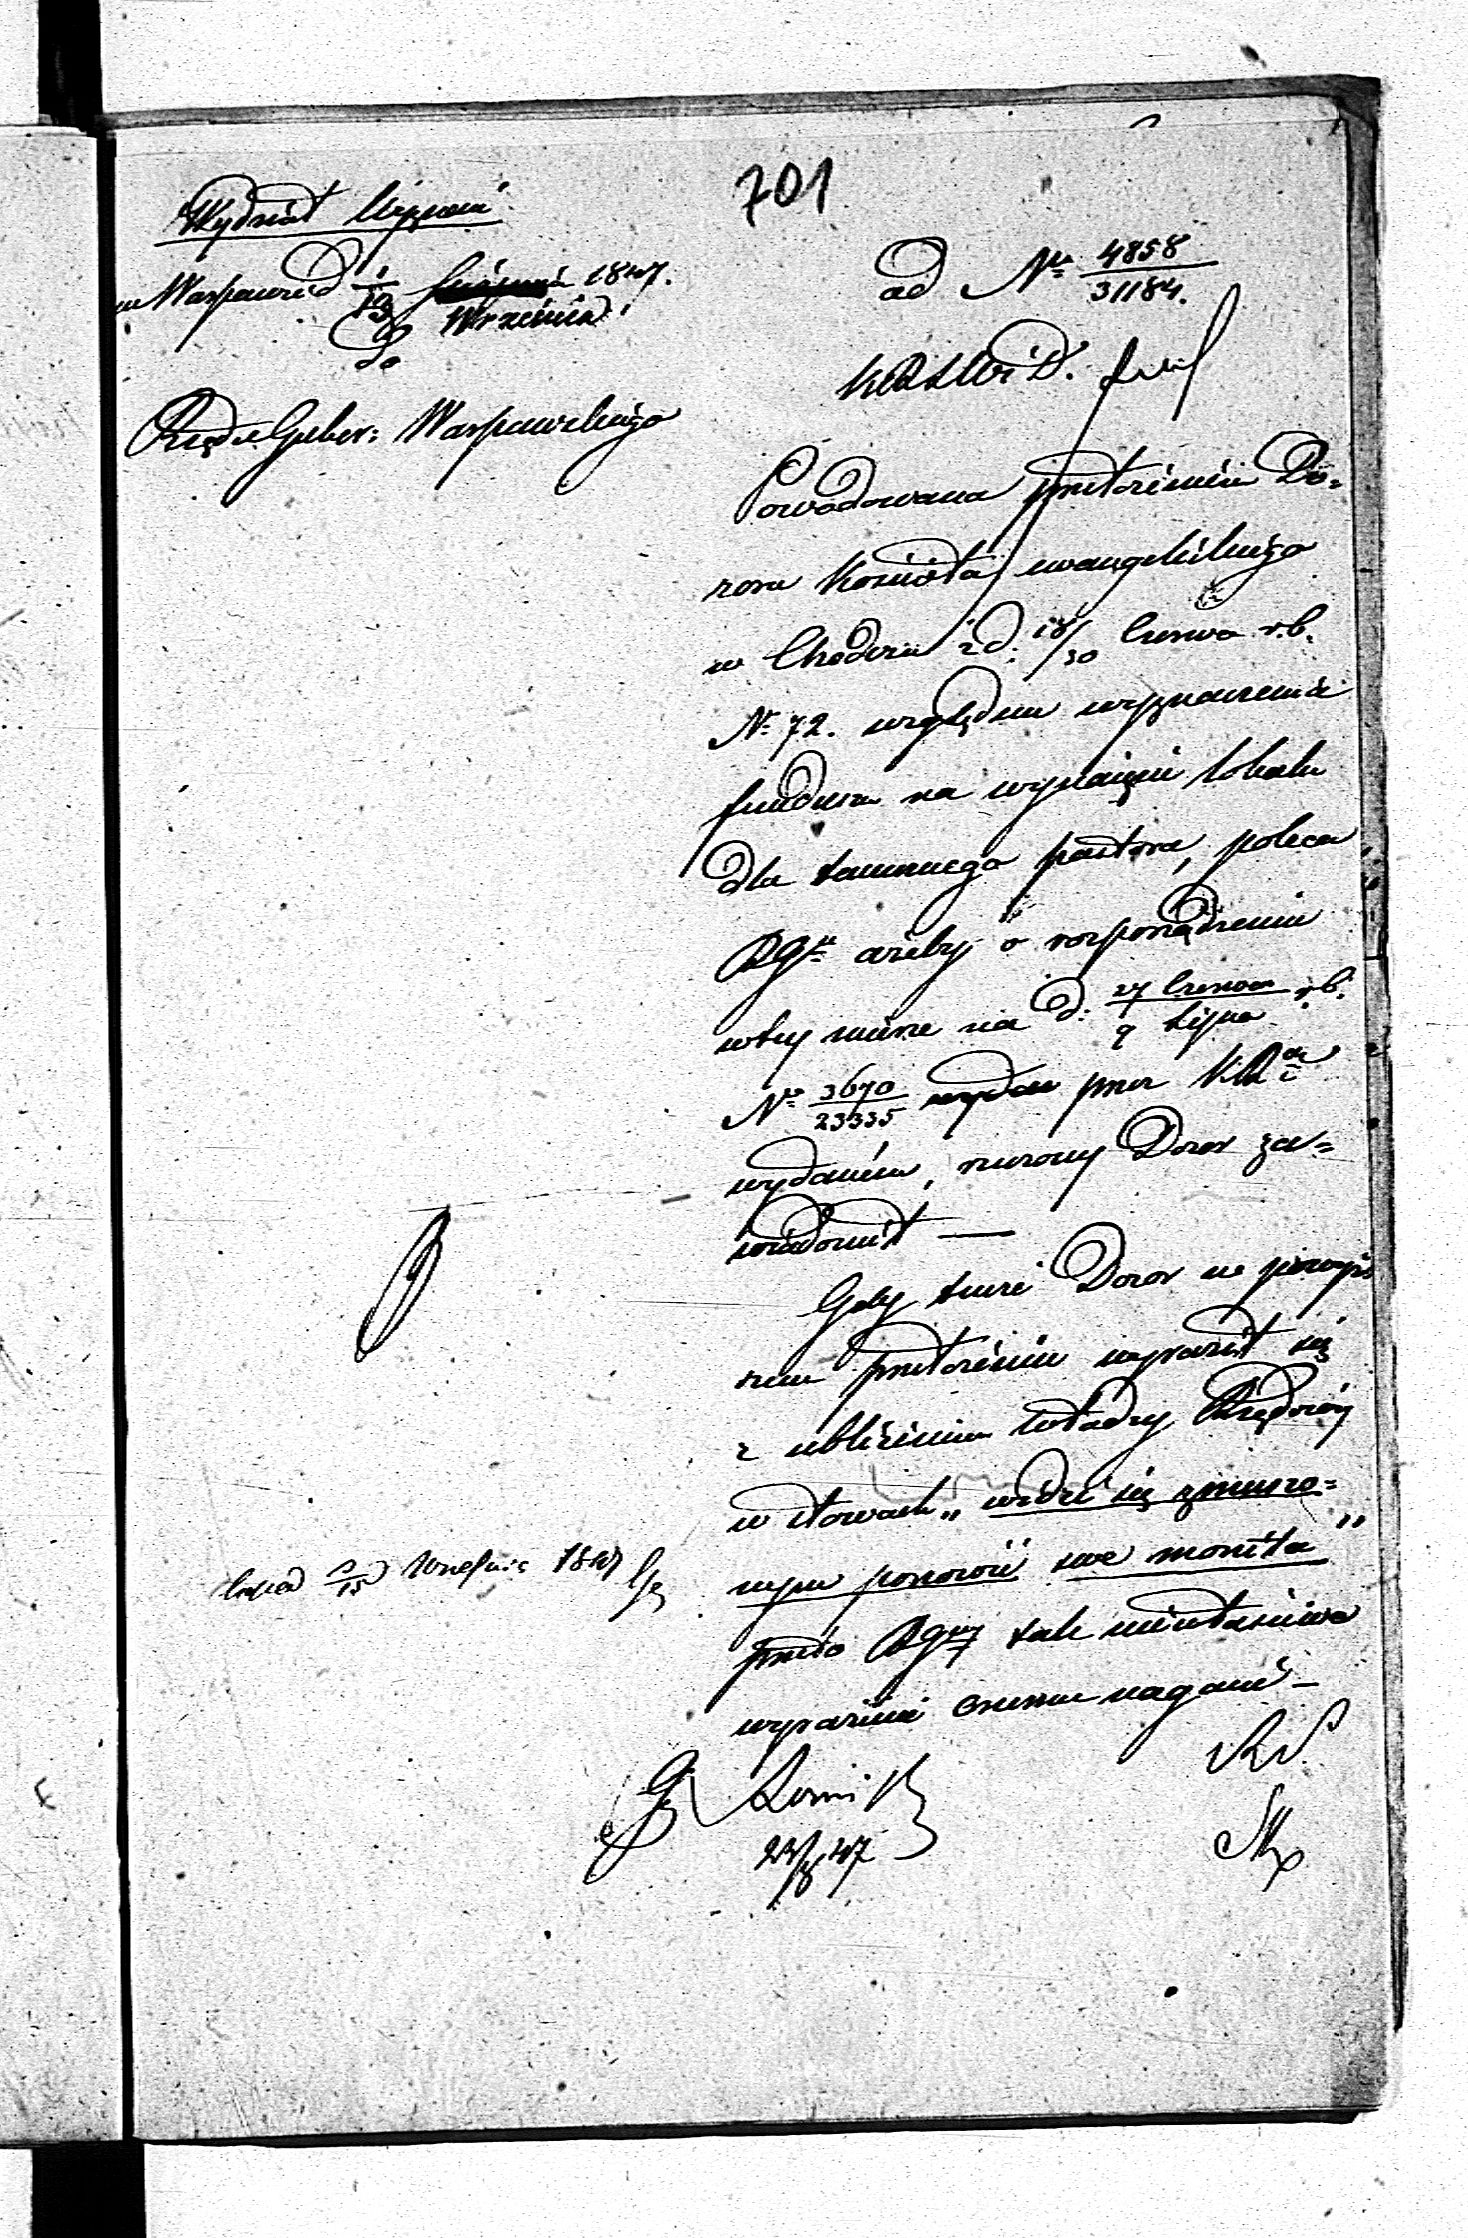 701
Wydział Wyznań
w Warszawie d 1/13 Września 1847.
do
Rządu Guber: Warszawskiego
ad Nr 4858/31184.
K R S W i D.
Powodowana przełożeniem Do=
zoru Kościoła ewangelickiego
w Chodczu z d. 18/30 Czerwca r.b.
Nr 72. względem wyznaczenia
funduszu na wynajęcie lokalu
dla tamecznego pastora, poleca
RGu ażeby o rozporządzeniu
w tey mierze na d: 27 Czerwca/9 Lipca r.b.
Nr 3670/23335 przez K.R.
wydaném, rzeczony Dozor za=
wiadomił —
Gdy tenże Dozor w powyż
szem przełożeniu wyraził się
z ubliżeniem Władzy Rządowéy
w słowach „widzi się zmuszo=
nym ponowić swe monita"
przeto RG tak niewłaściwe
wyrażenie onemu nagani —
d 3/15 Września 1847
23/8 47